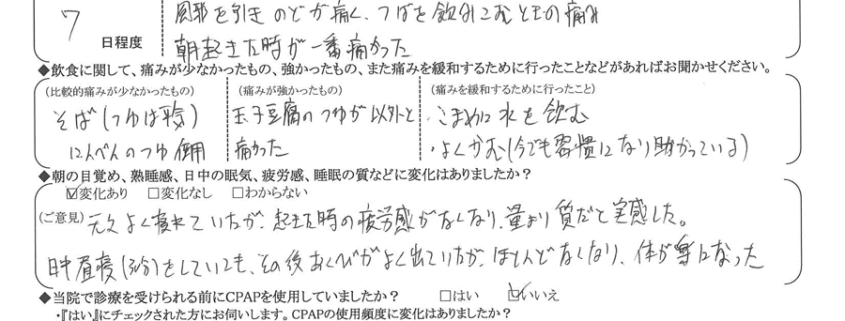 風邪を引きのどが痛く、つばを飲みこむときの痛み
7 日程度
朝起きた時が一番痛かった
◆飲食に関して、痛みが少なかったもの、強かったもの、また痛みを緩和するために行ったことなどがあればお聞かせください。
(比較的痛みが少なかったもの) (痛みが強かったもの) (痛みを緩和するために行ったこと)
そば(つゆは 玉子豆腐のつゆが以外と ・こまめに水を飲む
にんべんのつゆ使用 痛かった ・よくかむ(今でも習慣になり助かっている)
◆朝の目覚め、熟睡感、日中の眠気、疲労感、睡眠の質などに変化はありましたか?
☑変化あり □変化なし □わからない
(ご意見) 元々よく寝れていたが、起きた時の疲労感がなくなり、量より質だと実感した。
日中昼寝(30分)をしていても、その後あくびがよく出ていたが、ほとんどなくなり、体が楽になった
◆当院で診療を受けられる前にCPAPを使用していましたか? □はい ☑いいえ
・『はい』にチェックされた方にお伺いします。CPAPの使用頻度に変化はありましたか?